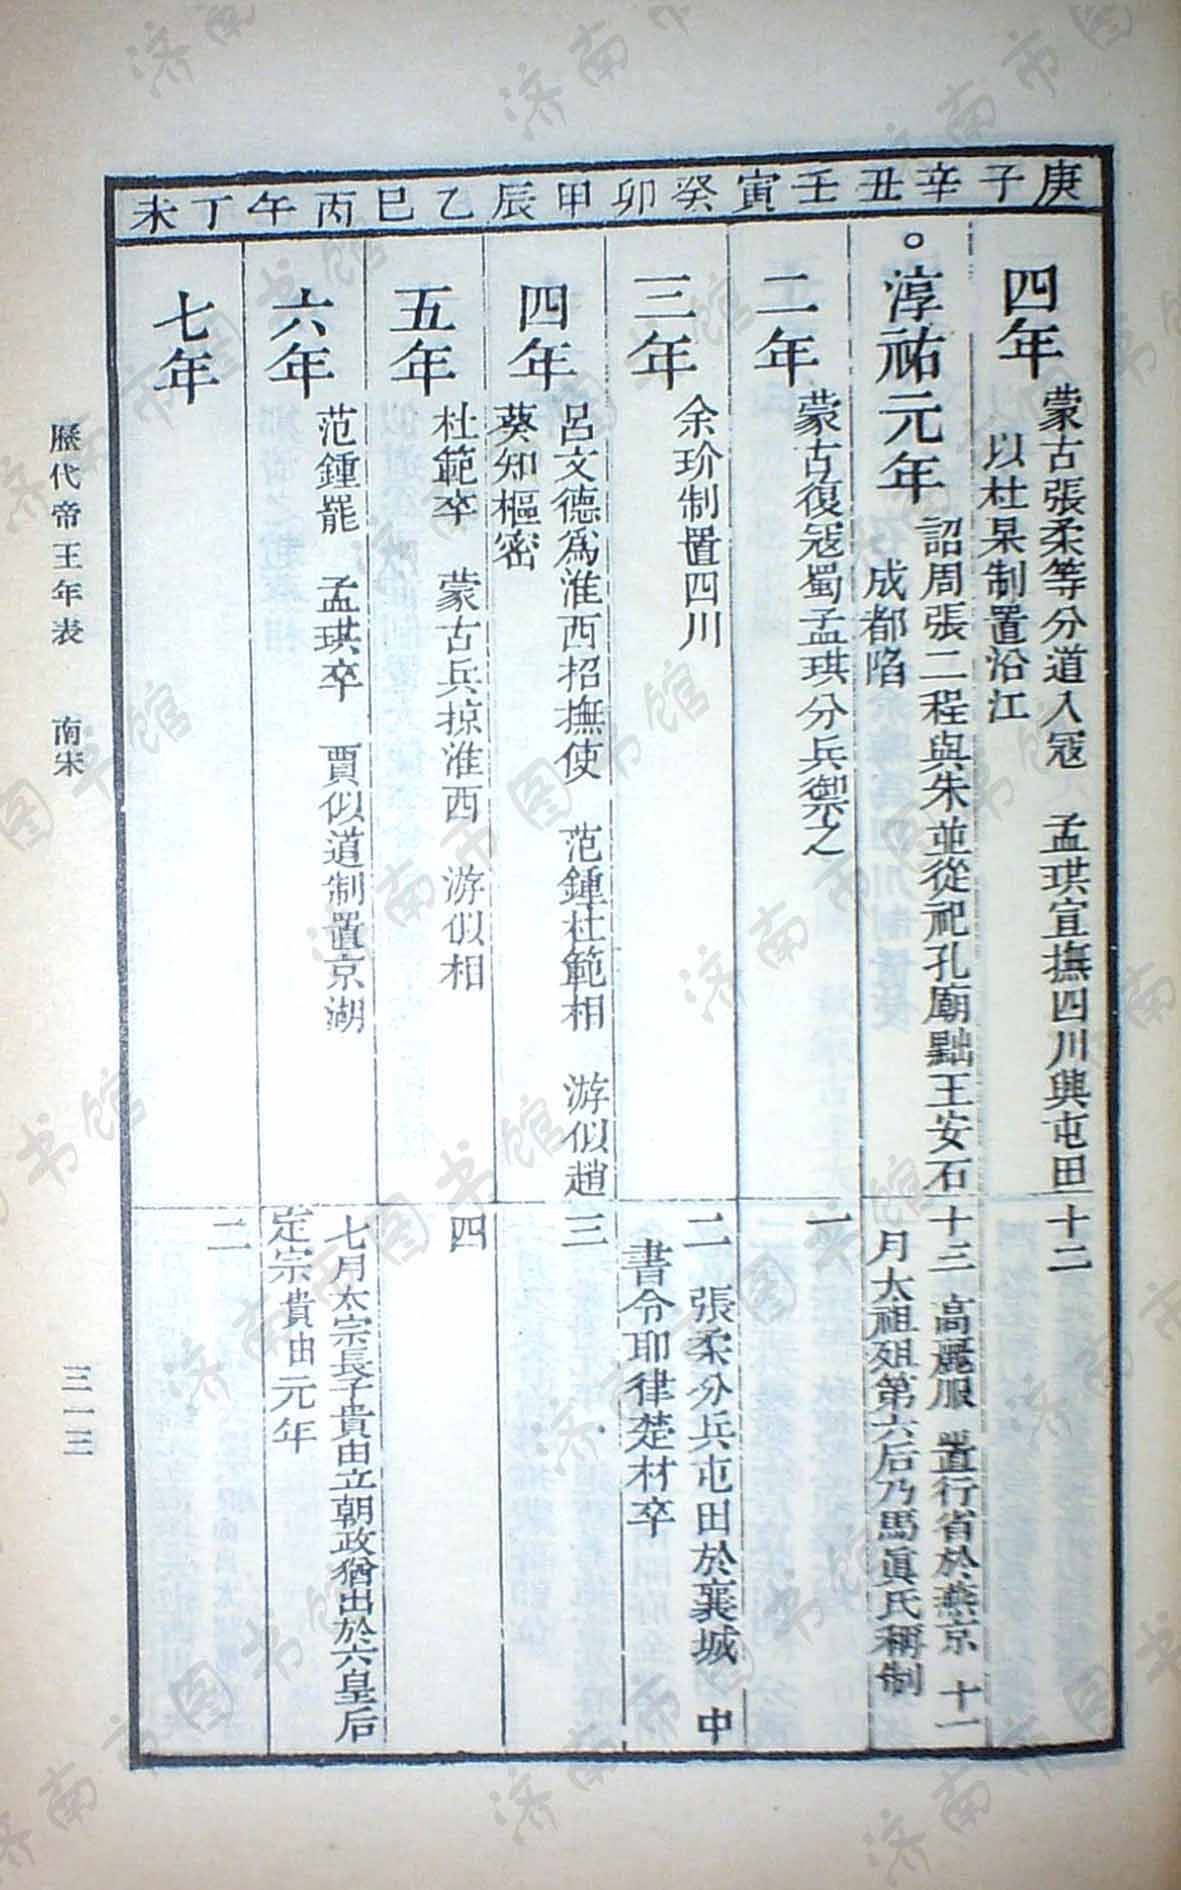 庚子
四年
蒙古張柔等分道入寇　孟珙宣撫四川興屯田
以杜杲制置沿江
十二
辛丑
。淳祐元年
詔周張二程與朱並從祀孔廟黜王安石
成都陷
十三　高麗服　置行省於燕京　十一
月太祖殂第六后乃馬眞氏稱制
壬寅
二年
蒙古復寇蜀孟珙分兵禦之
一
癸卯
三年
余玠制置四川
二　張柔分兵屯田於襄城　中
書令耶律楚材卒
甲辰
四年
呂文德爲淮西招撫使　范鍾杜範相　游似趙
葵知樞密
三
乙巳
五年
杜範卒　蒙古兵掠淮西　游似相
四
丙午
六年
范鍾罷　孟珙卒　賈似道制置京湖
七月太宗長子貴由立朝政猶出於六皇后
定宗貴由元年
丁未
七年
二
歷代帝王年表　南宋
三一三
济南市图书馆